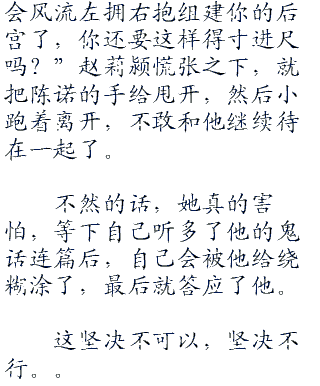 会风流左拥右抱组建你的后
宫了，你还要这样得寸进尺
吗？”赵莉颖慌张之下，就
把陈诺的手给甩开，然后小
跑着离开，不敢和他继续待
在一起了。
不然的话，她真的害
怕，等下自己听多了他的鬼
话连篇后，自己会被他给绕
糊涂了，最后就答应了他。
这坚决不可以，坚决不
行。。